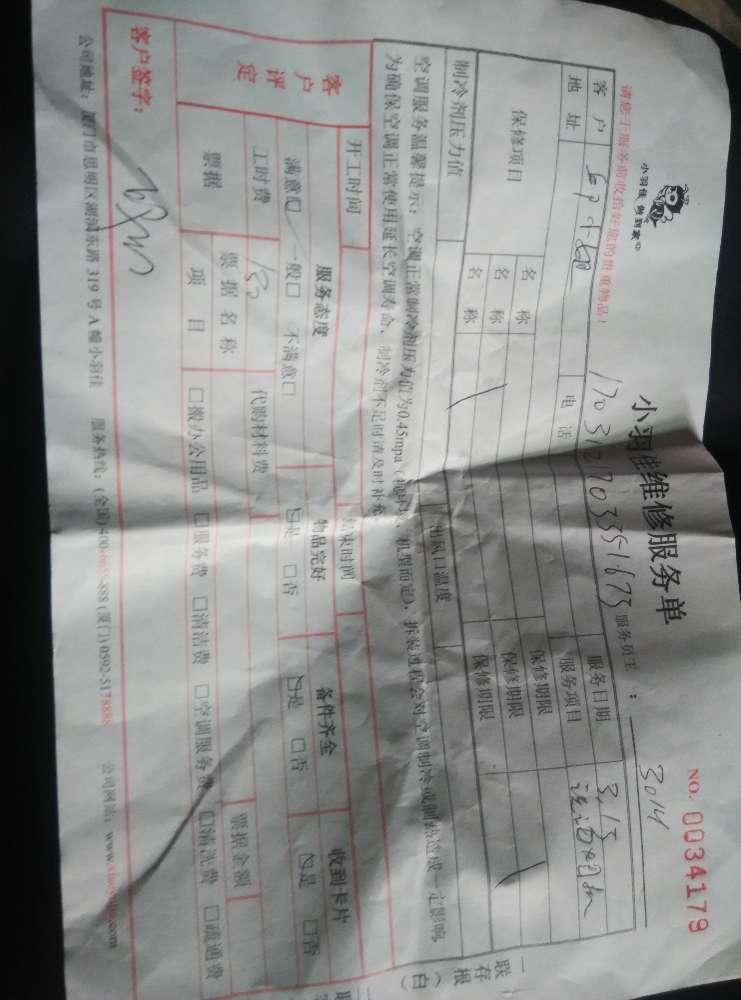 小羽佳 做到家
小羽佳维修服务单
NO. 0034179
请您于服务前收拾好您的贵重物品！
服务员工：3014
客户
电话
服务日期 3.15
地址
服务项目
保修项目
名称
保修期限
名称
保修期限
名称
保修期限
制冷剂压力值
出风口温度
空调服务温馨提示：空调正常制冷剂压力值为0.45mpa（视环境、机型而定），拆装过程会对空调制冷或制热造成一定影响，
为确保空调正常使用延长空调寿命，制冷剂不足时请及时补充。
开工时间
结束时间
客户评定
服务态度
物品完好
备件齐全
收到卡片
满意☑ 一般□ 不满意□
☑是 □否
☑是 □否
☑是 □否
工时费 150
代购材料费
票据
票据名称
票据金额
项目
□搬办公用品 □服务费 □清洁费 □空调服务费 □清洗费 □疏通费
客户签字：
公司地址：厦门市思明区湖滨东路319号A幢小羽佳 服务热线：(全国)400-6655-888 (厦门)0592-5178888 公司网站：
一联存根（白）